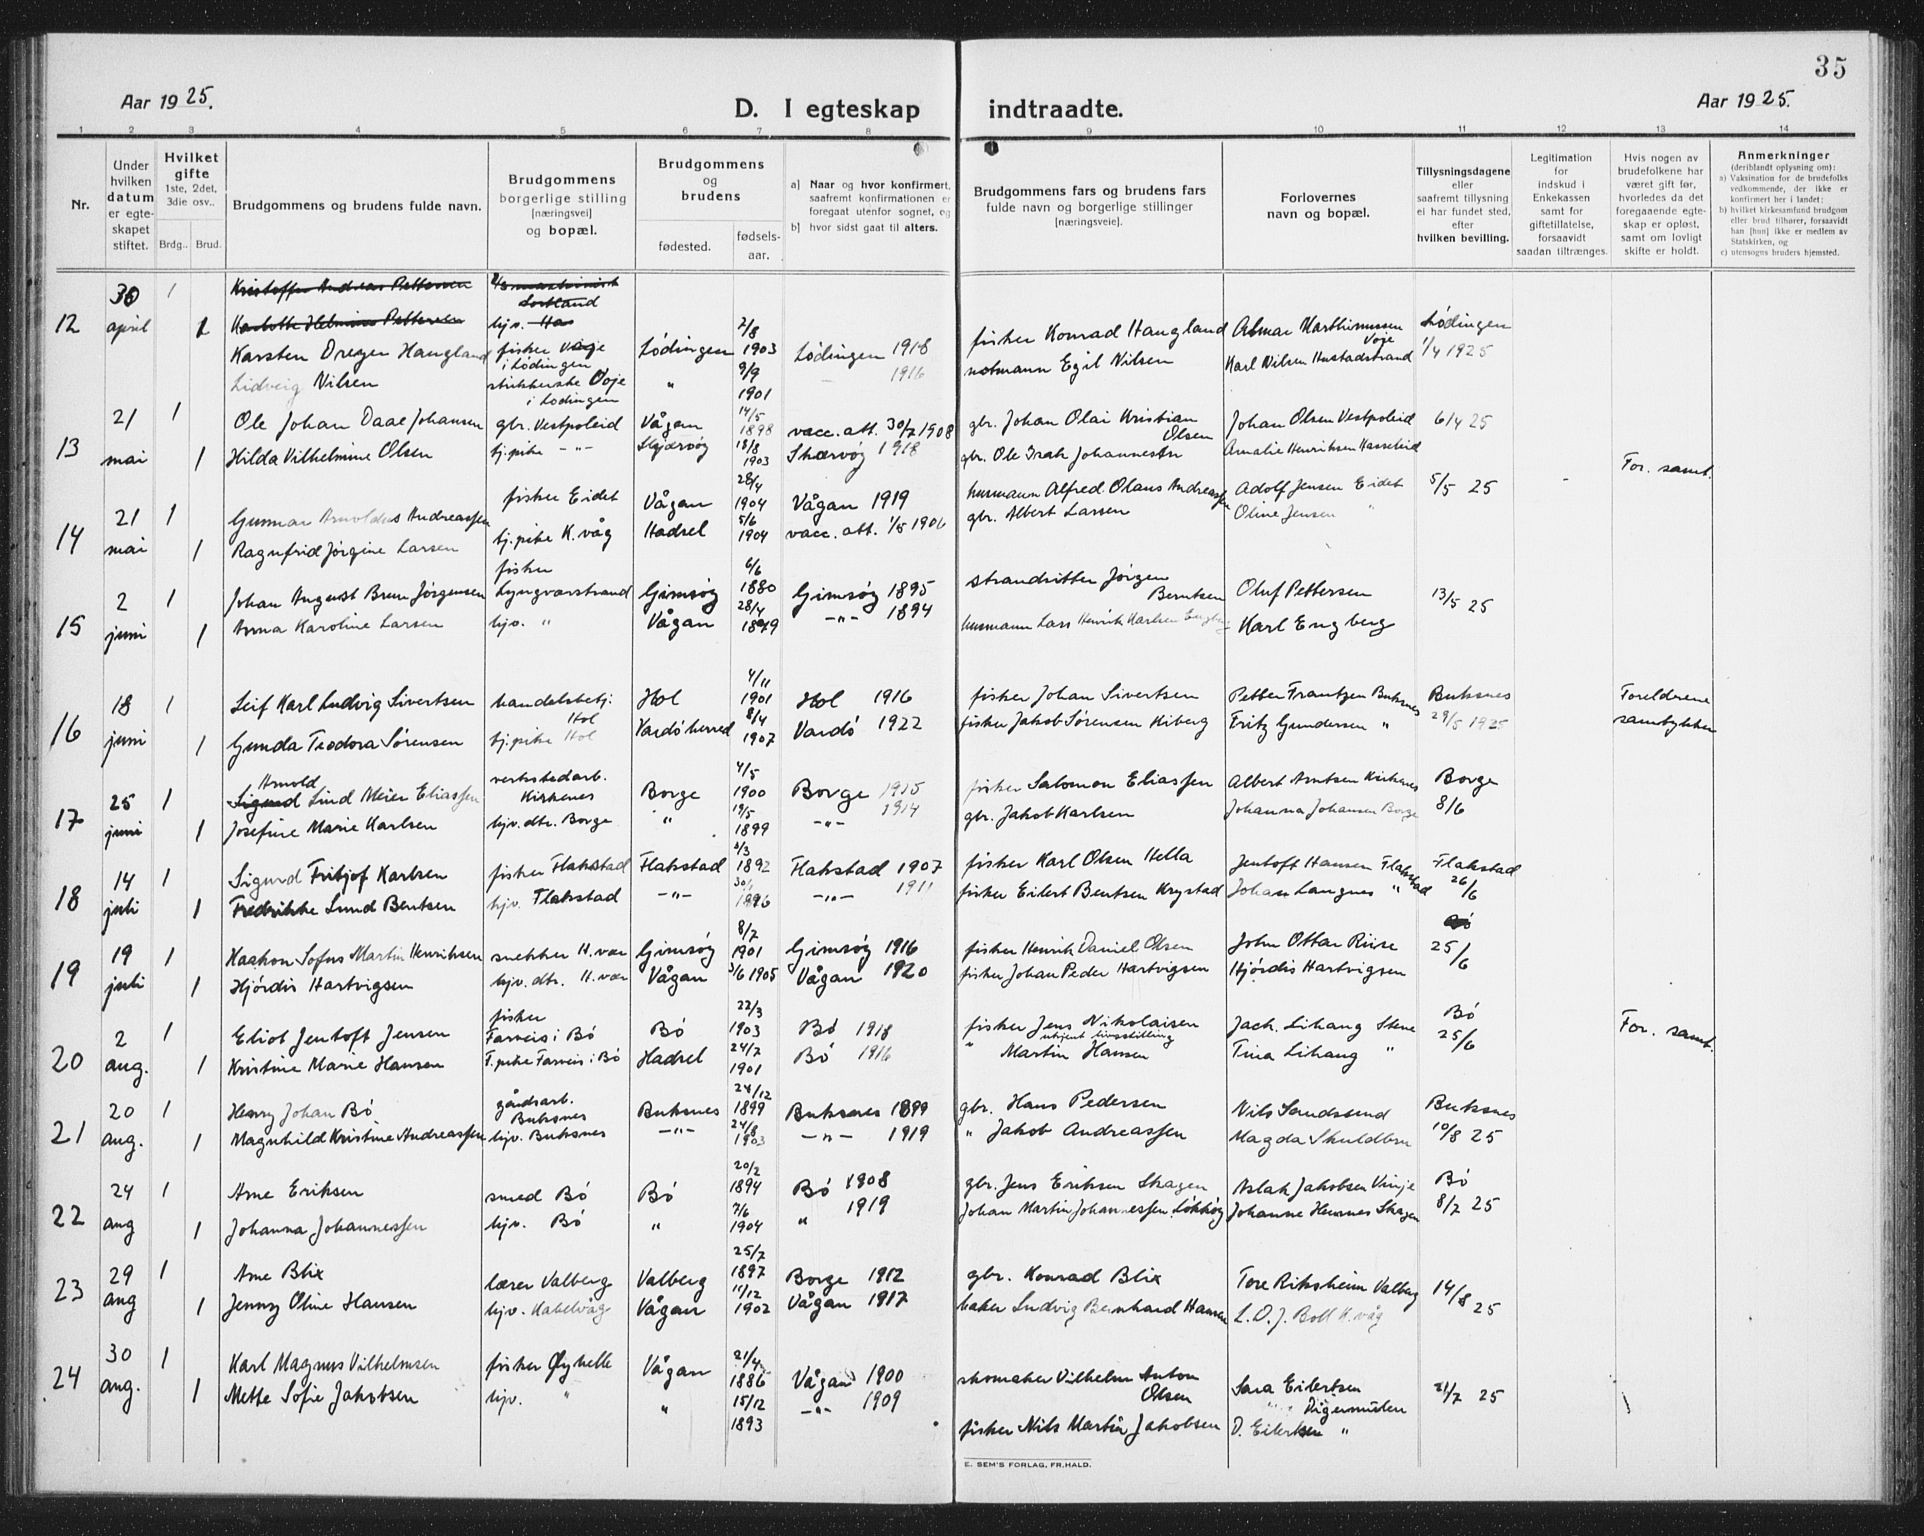 35
Aar 1925.
D. I egteskap indtraadte.
Aar 1925.
1 2 3 4 5 6 7 8 9 10 11 12 13 14
Nr.
Under hvilken datum er egteskapet stiftet.
Hvilket gifte 1ste, 2det, 3die osv..
Brdg. Brud.
Brudgommens og brudens fulde navn.
Brudgommens borgerlige stilling [næringsvei] og bopæl.
Brudgommens og brudens
fødested. fødselsaar.
a) Naar og hvor konfirmert, saafremt konfirmationen er foregaat utenfor sognet, og
b) hvor sidst gaat til alters.
Brudgommens fars og brudens fars fulde navn og borgerlige stillinger [næringsveie].
Forlovernes navn og bopæl.
Tillysningsdagene eller saafremt tillysning ei har fundet sted, efter hvilken bevilling.
Legitimation for indskud i Enkekassen samt for giftetillatelse, forsaavidt saadan tiltrænges.
Hvis nogen av brudefolkene har været gift før, hvorledes da det foregaaende egteskap er opløst, samt om lovligt skifte er holdt.
Anmerkninger (deriblandt oplysning om):
a) Vaksination for de brudefolks vedkommende, der ikke er konfirmert her i landet:
b) hvilket kirkesamfund brudgom eller brud tilhører, forsaavidt han [hun] ikke er medlem av Statskirken, og
c) utensogns bruders hjemsted.
12 30 april 1 Kristoffer Andreas Pettersen Lortland
1 Karlotte Helmine Pettersen hjv.
Karsten Dreyer Haugland fisker Voje i Lødingen Lødingen 2/8 1903 Lødingen 1918 fisker Konrad Haugland Almar Marthinussen Voje Lødingen 1/4 1925
Lidveig Nilsen Voje i Lødingen " 9/9 1901 1916 notmann Egil Nilsen Karl Nilsen Hustadstrand
13 21 mai 1 Ole Johan Daae Johansen gbr. Vestpoleid Vågan 14/5 1898 vacc. att. 30/7 1908 gbr. Johan Olai Kristian Olsen Johan Olsen Vestpoleid 6/4 25
1 Hilda Vilhelmine Olsen tj. pike -"- Skjærvøy 18/8 1903 Skærvøy 1918 gbr. Ole Isak Johannesen Amalie Henriksen
For. samt.
14 21 mai 1 Gunnar Arnoldus Andreassen fisker Eidet Vågan 28/4 1904 Vågan 1919 husmann Alfred Olaus Andreassen Adolf Jensen Eidet 5/5 25
1 Ragnfrid Jørgine Larsen tj. pike K.våg Hadsel 5/6 1904 vacc. att. 1/5 1906 gbr. Albert Larsen Oline Jensen "
15 2 juni 1 Johan August Brun Jørgensen fisker Lyngværstrand Gimsøy 6/6 1880 Gimsøy 1895 strandsitter Jørgen Berntsen Oluf Pettersen 13/5 25
1 Anna Karoline Larsen hjv. " Vågan 28/4 1879 -"- 1894 husmann Lars Henrik Karlsen Engberg Karl Engberg
16 18 juni 1 Leif Karl Ludvig Sivertsen handelsbetj. Hol Hol 4/11 1901 Hol 1916 fisker Johan Sivertsen Petter Frantzen Buksnes Buksnes 29/5 1925 Foreldrene samtykker
1 Gunda Teodora Sørensen tj. pike Hol Vardø herred 8/4 1907 Vardø 1922 fisker Jakob Sørensen Kiberg Fritz Gundersen "
17 25 juni 1 Arnold Sigurd Lind Meier Eliassen verkstedarb. Kirkenes Borge 4/5 1900 Borge 1915 fisker Salomon Eliassen Albert Arntsen Kirkenes Borge 8/6
1 Josefine Marie Karlsen hjv. dtr. Borge " 19/5 1899 -"- 1914 gbr. Jakob Karlsen Johanna Johansen Borge
18 14 juli 1 Sigurd Fritjof Karlsen fisker Flakstad Flakstad 2/3 1892 Flakstad 1907 fisker Karl Olsen Hella Jentoft Hansen Flakstad Flakstad 26/6
1 Fredrikke Lund Bentsen hjv. Flakstad -"- 1896 -"- 1911 fisker Eilert Bentsen Krystad Johan Langnes "
19 19 juli 1 Haakon Sofus Martin Henriksen snekker H. vær Gimsøy 8/7 1901 Gimsøy 1916 fisker Henrik Daniel Olsen John Ottar Riise Bø 25/6
1 Hjørdis Hartvigsen hjv. dtr. H. vær Vågan 3/6 1905 Vågan 1920 fisker Johan Peder Hartvigsen Hjørdis Hartvigsen
20 2 aug. 1 Eliot Jentoft Jensen fisker Farveis i Bø Bø 22/3 1903 Bø 1918 fisker Jens Nikolaisen Jach. Lihaug Stene Bø 25/6 For. samt.
1 Kristine Marie Hansen T. pike Farveis i Bø Hadsel 24/7 1901 Bø 1916 " ukjent livsstilling Martin Hansen Tina Lihaug "
21 20 aug. 1 Henry Johan Bø gårdsarb. Buksnes Buksnes 24/12 1899 Buksnes 1899 gbr. Hans Pedersen Nils Sandsund Buksnes 10/8 25
1 Magnhild Kristine Andreassen hjv. Buksnes -"- 24/8 1903 -"- 1919 " Jakob Andreassen Magda
22 24 aug 1 Arne Eriksen smed Bø Bø 20/2 1894 Bø 1908 gbr. Jens Eriksen Skagen Aslak Jakobsen Vinje Bø 8/7 25
1 Johanna Johannessen hjv. Bø " 7/6 1904 " 1919 Johan Martin Johannessen Johanne Skagen
23 29 aug 1 Arne Blix lærer Valberg Valberg 25/7 1897 Borge 1912 gbr. Konrad Blix Tore Riksheim Valberg 14/8 25
1 Jenny Oline Hansen hjv. Kabelvåg Vågan 17/12 1902 Vågan 1917 baker Ludvig Bernhard Hansen L. O. J. Boll K.våg
24 30 aug. 1 Karl Magnus Vilhelmsen fisker Øyhelle Vågan 21/4 1886 Vågan 1900 skomaker Vilhelm Anton Olsen Sara Eilertsen Digermulen 21/7 25
1 Mette Sofie Jakobsen hjv. " " 15/12 1893 -"- 1909 fisker Nils Martin Jakobsen D. Eilertsen "
E. SEM'S FORLAG, FR.HALD.